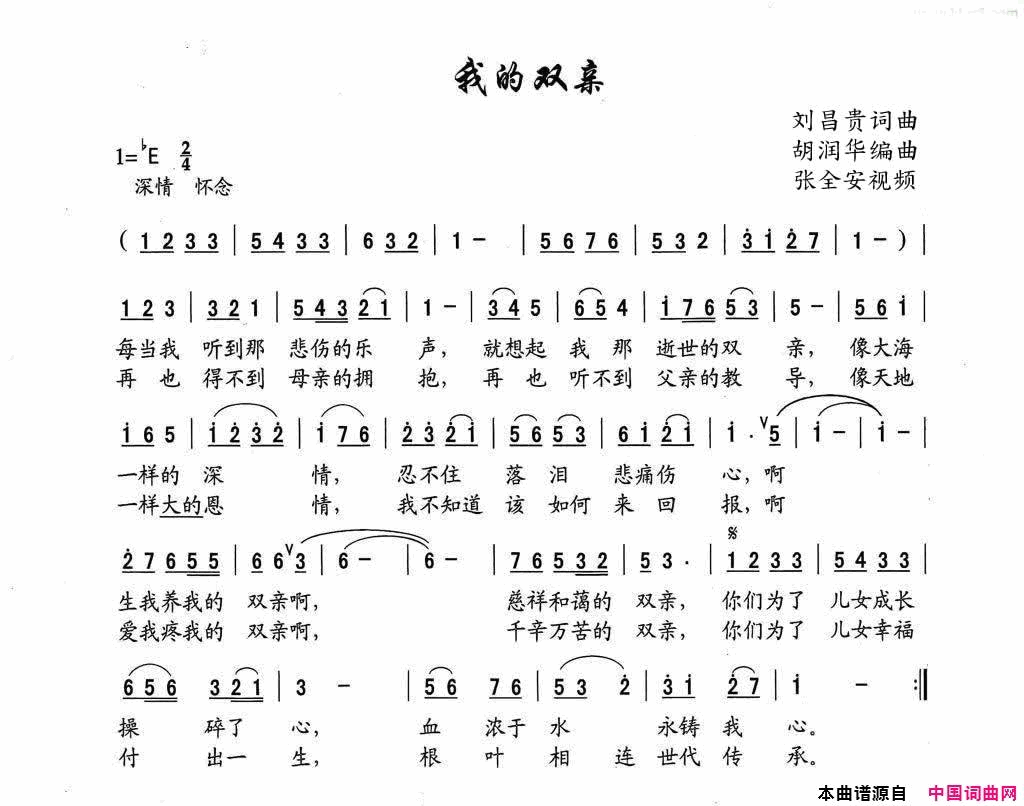 我的双亲
刘昌贵词曲
1=♭E 2/4
胡润华编曲
深情 怀念
张全安视频
( 1 2 3 3 | 5 4 3 3 | 6 3 2 | 1 - | 5 6 7 6 | 5 3 2 | 3 1 2 7 | 1 - ) |
1 2 3 | 3 2 1 | 5 4 3 2 1 | 1 - | 3 4 5 | 6 5 4 | 1 7 6 5 3 | 5 - | 5 6 1 |
每当我 听到那 悲伤的乐 声, 就想起 我那 逝世的双 亲, 像大海
再也 得不到 母亲的拥 抱, 再也 听不到 父亲的教 导, 像天地
1 6 5 | 1 2 3 2 | 1 7 6 | 2 3 2 1 | 5 6 5 3 | 6 1 2 1 | 1 · ∨ 5 | 1 - | 1 - |
一样的 深 情, 忍不住 落泪 悲痛伤 心,啊
一样大的恩 情, 我不知道 该如何 来回 报,啊
𝄋
2 7 6 5 5 | 6 6 ∨ 3 | 6 - | 6 - | 7 6 5 3 2 | 5 3 · | 1 2 3 3 | 5 4 3 3 |
生我养我的 双亲啊, 慈祥和蔼的 双亲, 你们为了 儿女成长
爱我疼我的 双亲啊, 千辛万苦的 双亲, 你们为了 儿女幸福
6 5 6 3 2 1 | 3 - | 5 6 7 6 | 5 3 2 | 3 1 2 7 | 1 - :||
操 碎了 心, 血 浓于 水 永铸 我 心。
付 出一 生, 根 叶 相 连 世代 传 承。
本曲谱源自 中国词曲网